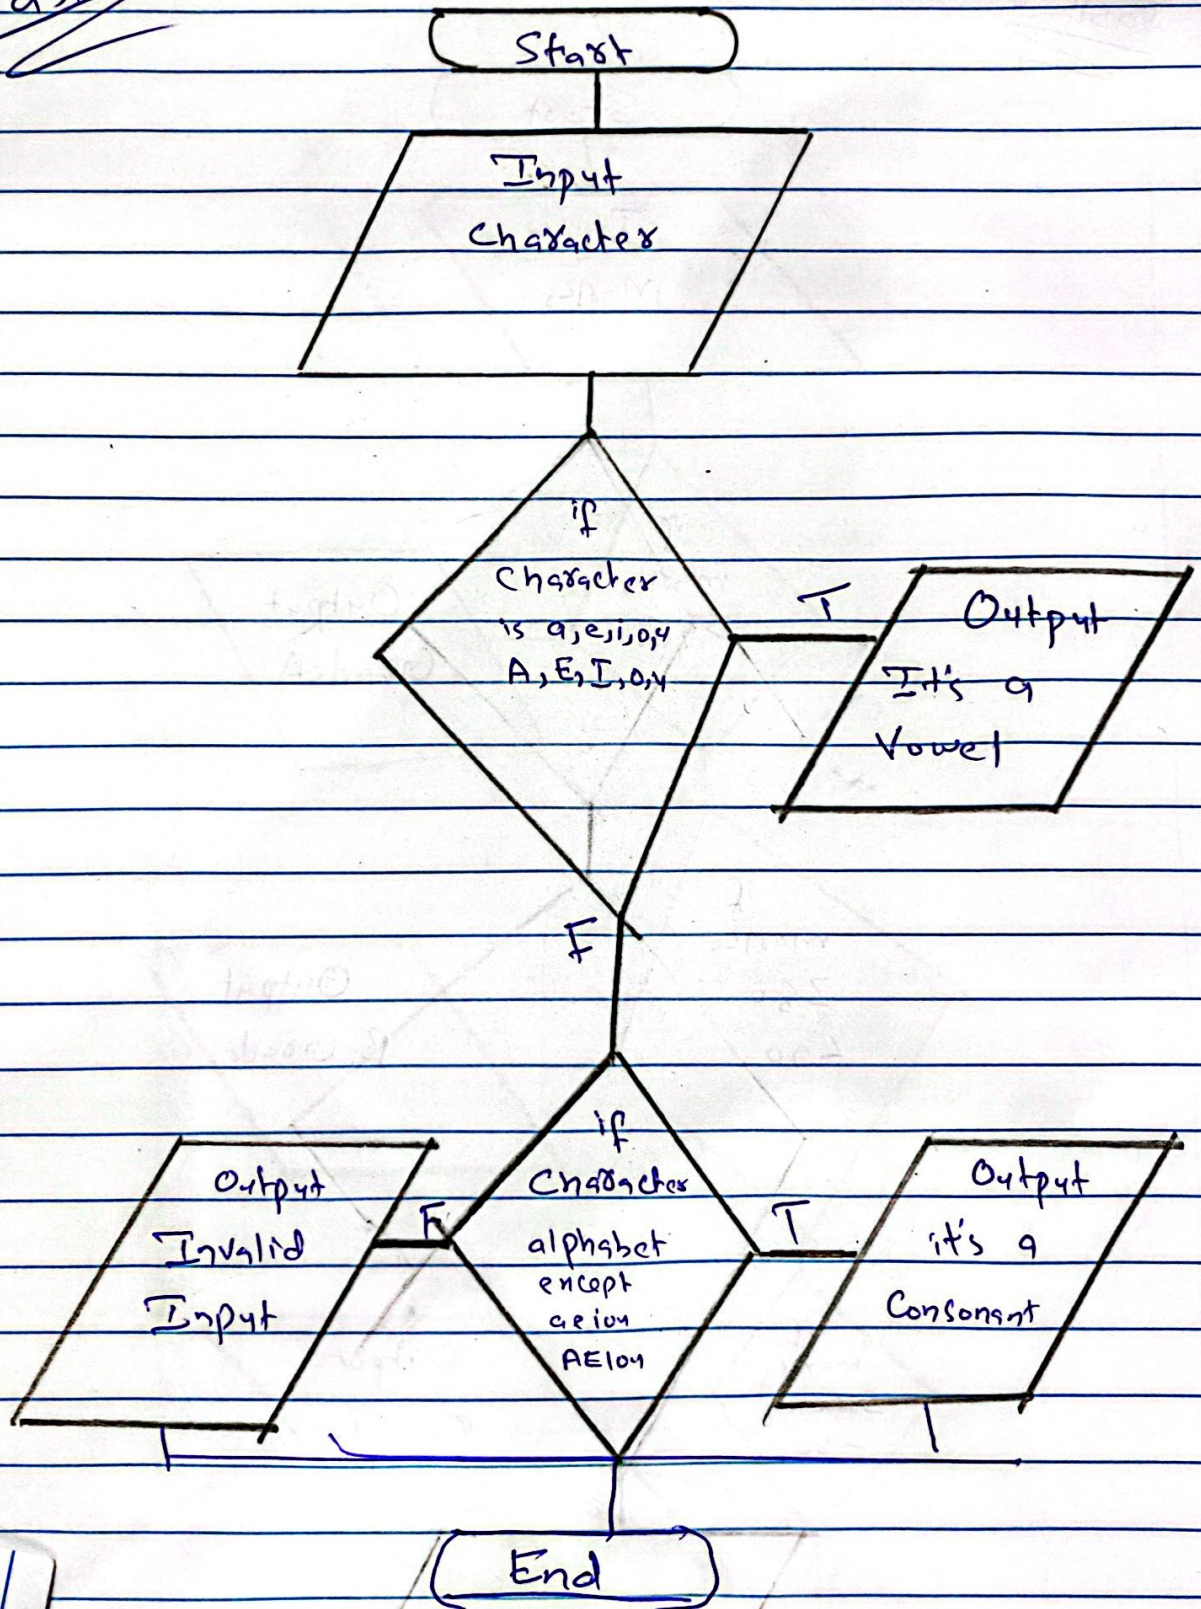 Start
Input
Character
if
Character
is a,e,i,o,u
A,E,I,O,U
T
Output
It's a
Vowel
F
if
Character
alphabet
except
aeiou
AEIOU
F
Output
Invalid
Input
T
Output
it's a
Consonant
End